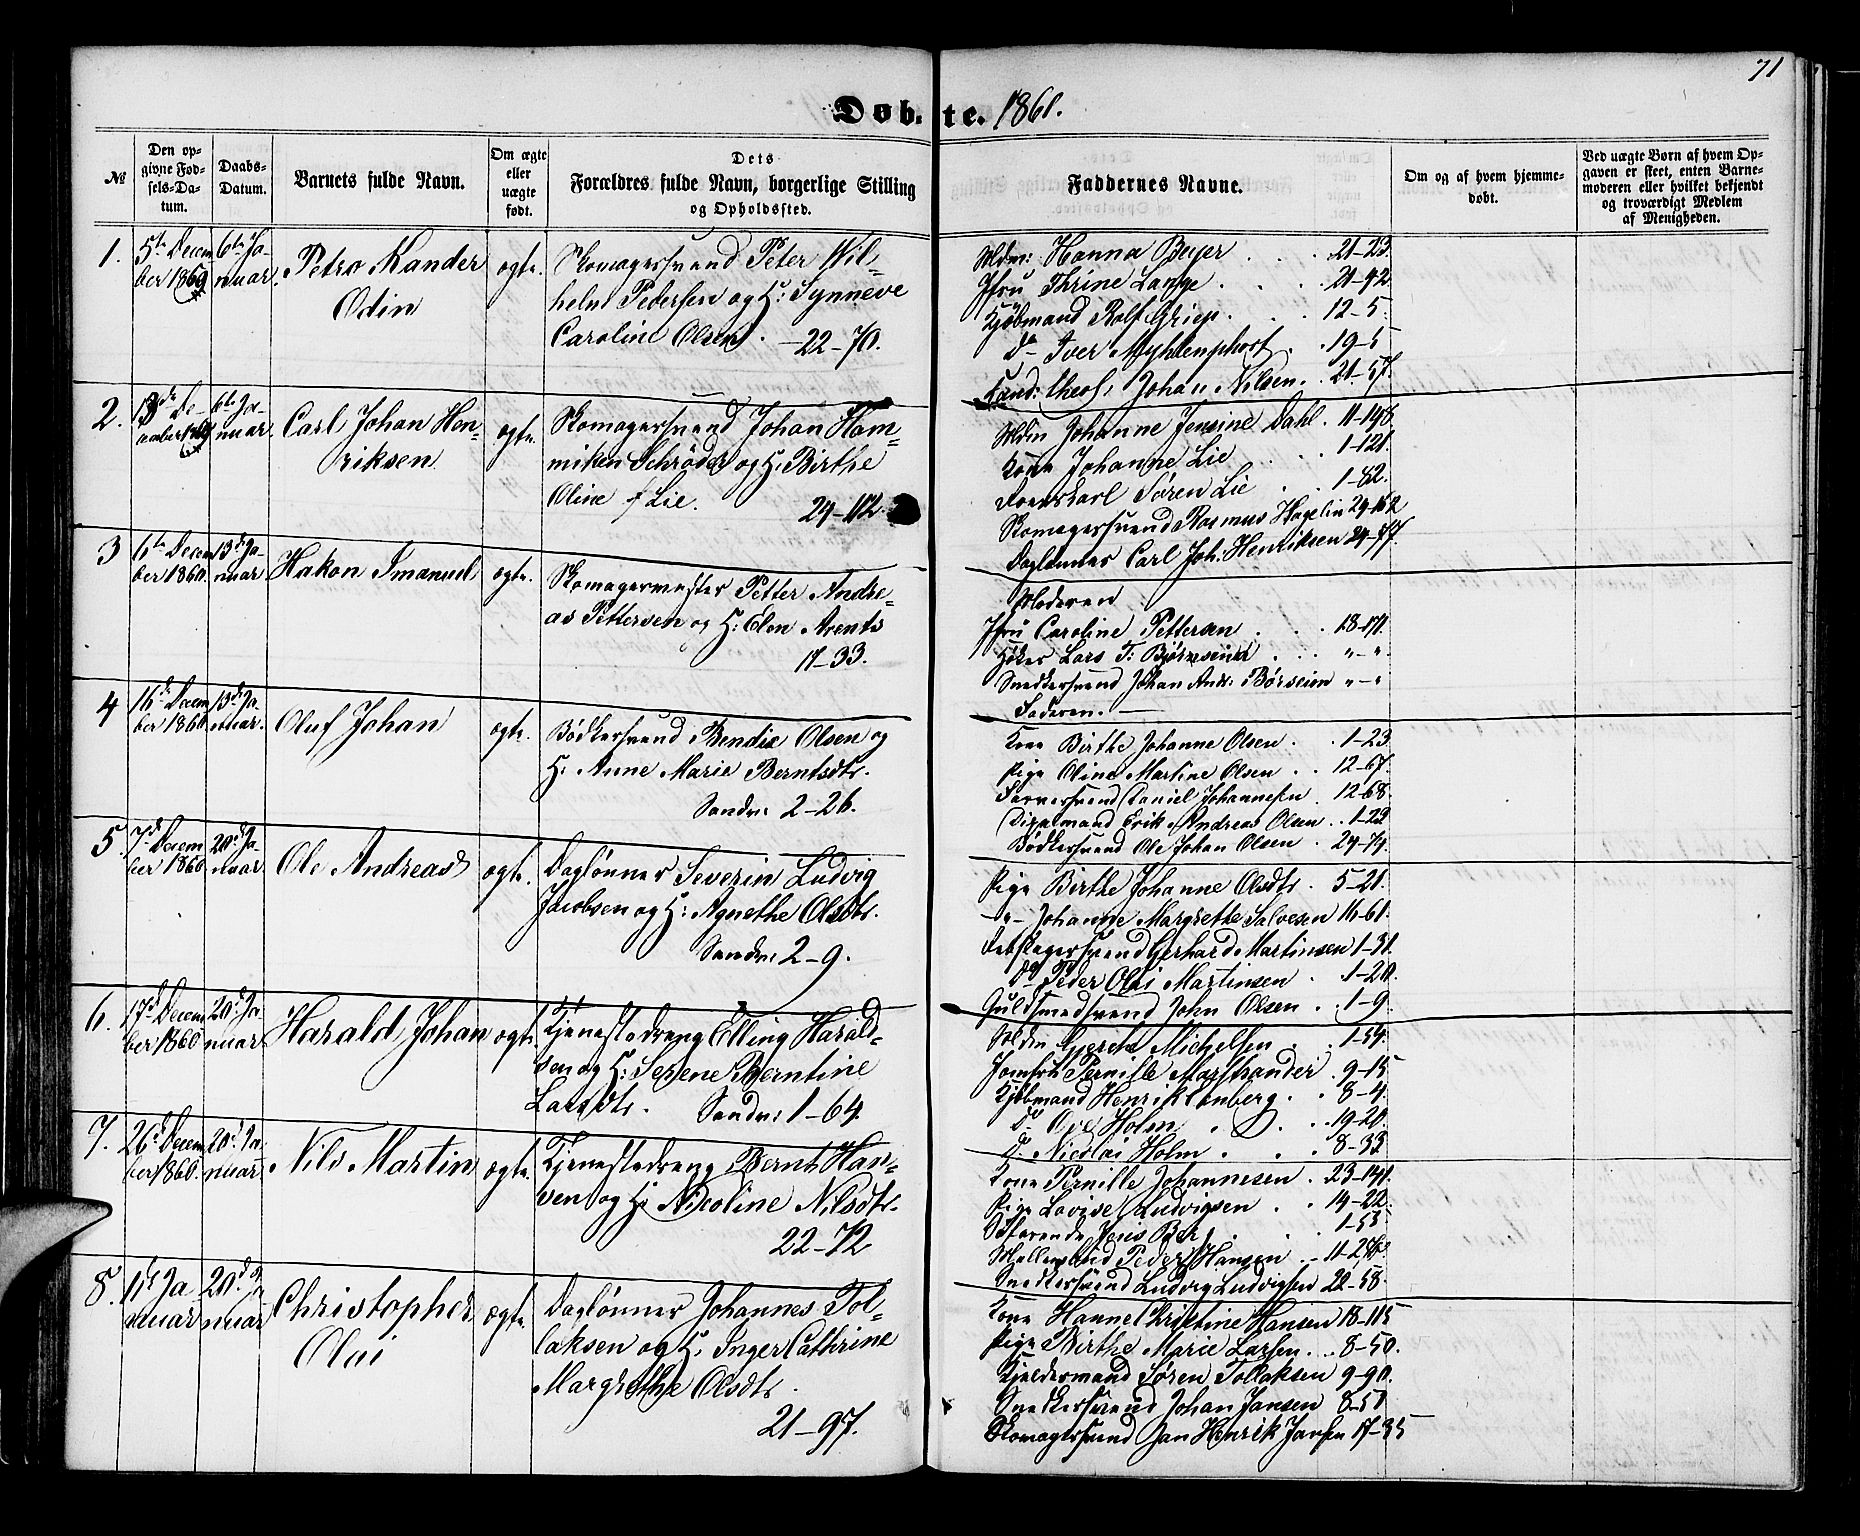 71
Døbte. 1861.
№
Den opgivne Fødsels-Datum.
Daabs-Datum.
Barnets fulde Navn.
Om ægte eller uægte født.
Dets Forældres fulde Navn, borgerlige Stilling og Opholdssted.
Faddernes Navne.
Om og af hvem hjemmedøbt.
Ved uægte Børn af hvem Opgaven er skeet, enten Barnemoderen eller hvilket bekjendt og troværdigt Medlem af Menigheden.
1.
5te Decem
ber 1860
6te Ja-
nuar.
Petra Kander
Odin
ægte.
Skomagersvend Peter Wil-
helm Pedersen og H: Synneve
Caroline Olsen. 22-70.
Mdm: Hanna Beyer . . . 21-23.
Jfru Thrine Lange . . 21-92
Kjøbmand Rolf Griep. . 12-5
Do Iver Myhlenphort . . 19-5
Cand: theol, Johan Nilsen. . 21-57.
2.
De-
6te Ja-
nuar.
Carl Johan Hen-
riksen
ægte.
Skomagersvend Johan Ham-
miken Schrøder og H. Birthe
Oline f Lie. 24-112.
Mdm Johanne Jensine Dahl. 11-148
Kone Johanne Lie . . . 1-121.
Søren Lie . 1-82.
Skomagersvend Rasmus Hagelin 24-112
Daglønner Carl Joh: Henriksen 24-77.
3
6te Decem
ber 1860.
13de Ja-
nuar.
Hakon Imanuel
ægte.
Skomagermester Petter Andre-
as Pettersen og H: Elen Arents
17-33.
Moderen
Jfru Caroline Pettersen . . . 18-171.
Høker Lars T: . . . "-"
Snedkersvend Johan And: Børseien "-"
Faderen. —
4
16de Decem
ber 1860.
13de Ja-
nuar.
Oluf Johan
ægte.
Bødkersvend Bendix Olsen og
H. Anne Marie Berntsdtr.
Sandv: 2-26.
Kone Birthe Johanne Olsen . . 1-23
Pige Oline Martine Olsen . . 12-67.
Farversvend Daniel Johannesen . 12-68.
Erik Andreas Olsen . . 1-23
Bødkersvend Ole Johan Olsen . 24-74.
5.
7de Decem
ber 1860
20de Ja-
nuar.
Ole Andreas
ægte.
Daglønner Severin Ludvig
Jacobsen og H: Agnethe Olsdtr.
Sandv: 2-9.
Pige Birthe Johanne Olsdtr . 5-21.
-"- Johanne Margrethe Salvesen 16-61.
Rebslagersvend Gerhard Martinsen 1-31.
Do Peder Olai Martinsen . 1-20.
Guldsmedsvend John Olsen . . 1-9.
6.
17de Decem
ber 1860
20de Ja-
nuar.
Harald Johan
ægte.
Tjenestedreng Elling Harald-
sen og H: Serene Berntine
Larsdtr. Sandv: 1-64.
Mdm Grethe Michelsen . . 1-54.
Jomfru Pernille Marstrander . 9-15
Kjøbmand Henrik Lonberg. . 8-4.
Do Ove Holm . . . 19-20.
Do Nicolai Holm . . . 8-33
7.
26de Decem
ber 1860.
20de Ja-
nuar.
Nils Martin
ægte.
Tjenestedreng Bernt Han-
sen og H: Nicoline Nilsdtr.
22-72
Kone Pernille Johannesen . 23-141.
Pige Lovise Ludvigsen . . 14-22.
Søfarende Jens Berg . . 1-55
Møllersvend Peder Hansen . . 11-286
Snedkersvend Ludvig Ludvigsen 22-58.
8.
11de Ja
nuar
20de Ja
nuar
Christopher
Olai
ægte.
Daglønner Johannes Tol-
laksen og H. Inger Cathrine
Margrethe Olsdtr.
21-97.
Kone Hanne Kristine Hansen 18-115
Pige Birthe Marie Larsen . . 8-50.
Kjeldermand Søren Tollaksen 9-90.
Snedkersvend Johan Jansen 8-51
Skomagersvend Jan Henrik Jansen 17-35